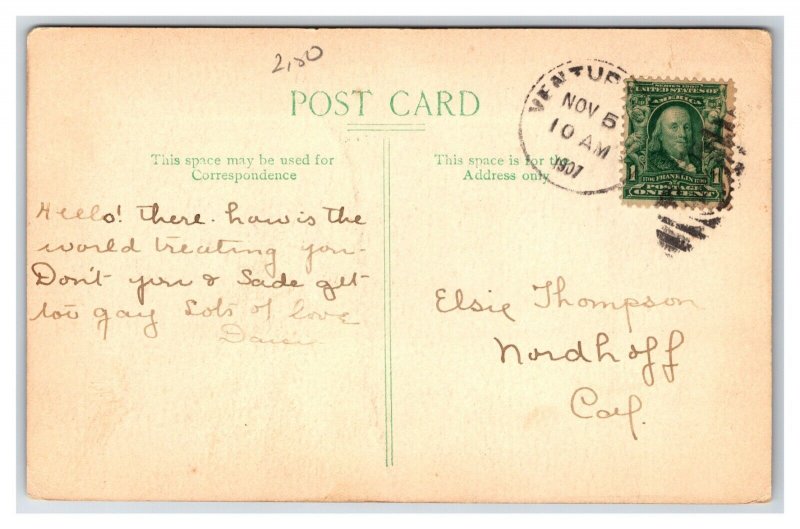 2,50
POST CARD
This space may be used for
Correspondence
This space is for the
Address only
VENTUR
NOV 5
10 AM
1907
SERIES 1902
UNITED STATES OF
AMERICA
1706 FRANKLIN 1790
1 POSTAGE 1
ONE CENT
Hello! there. how is the
world treating you-
Don't you & Sade get
too gay Lots of love
Elsie Thompson
Nordhoff
Cal.